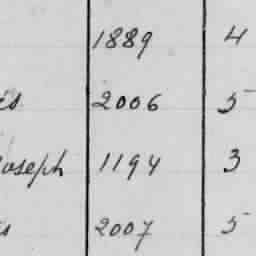 1889 4
2006 5
oseph 1194 3
2007 5